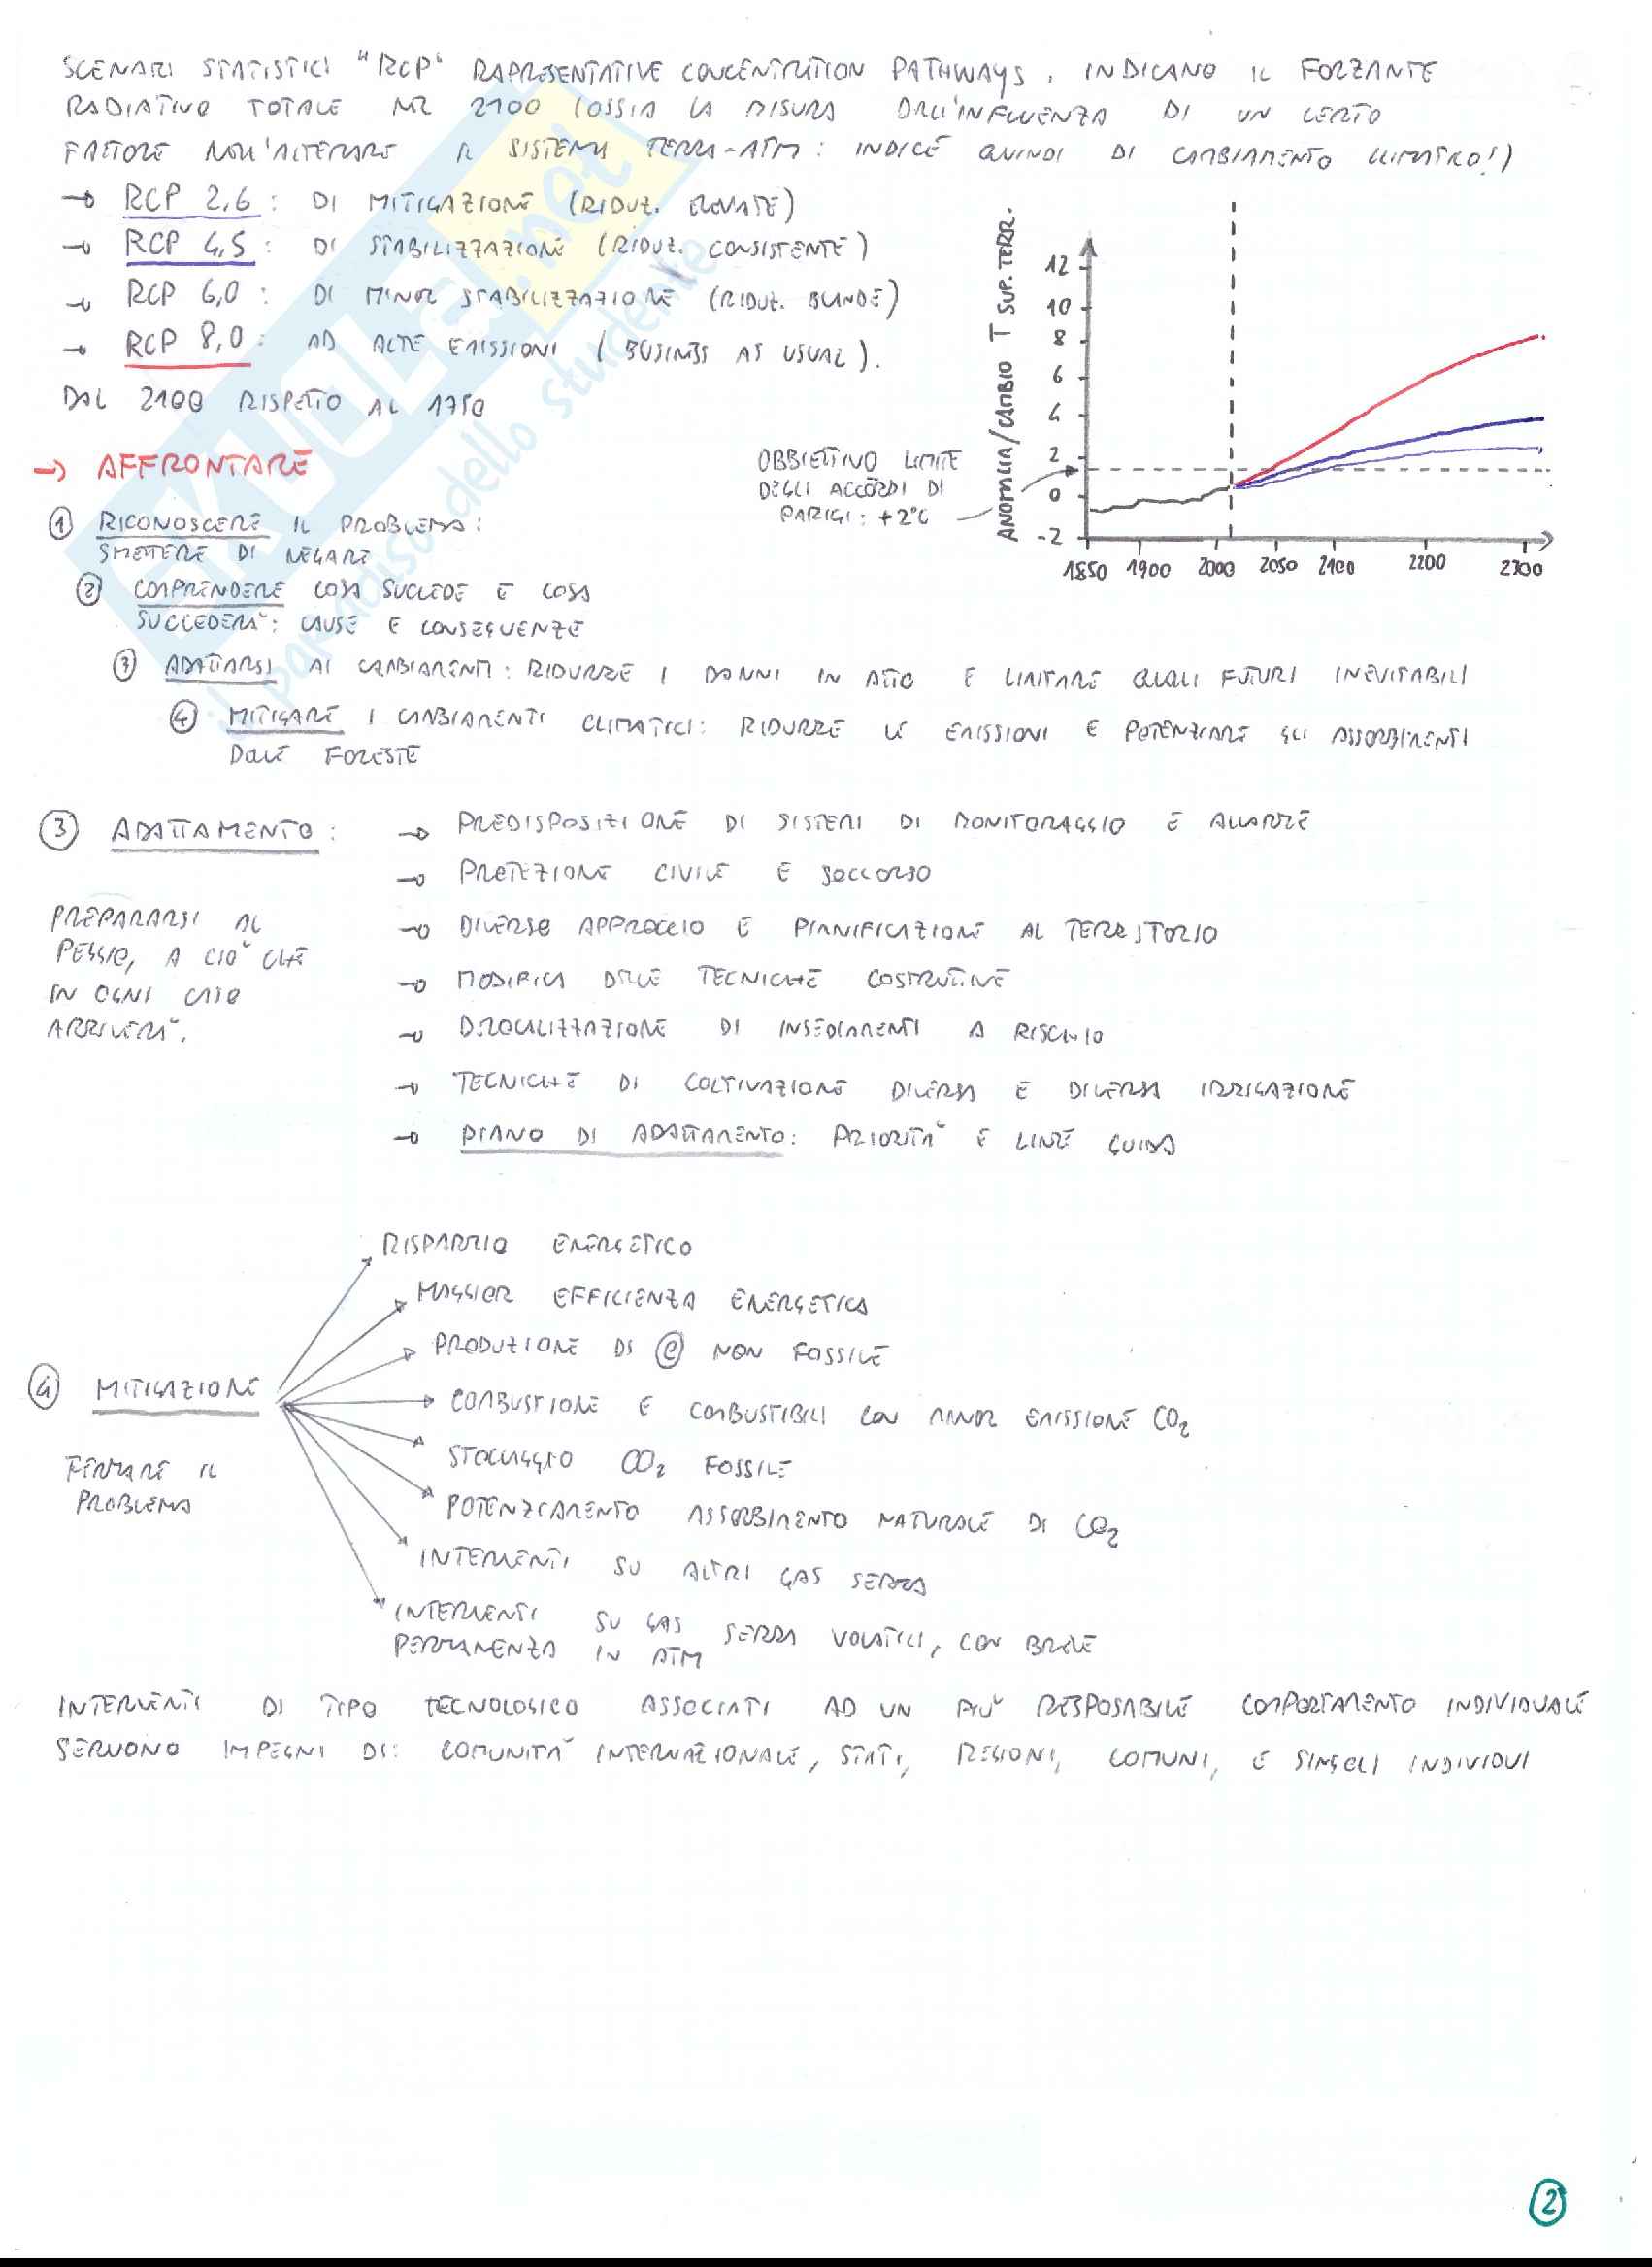 SCENARI STATISTICI "RCP" RAPRESENTATIVE CONCENTRATION PATHWAYS, INDICANO IL FORZANTE
RADIATIVO TOTALE NEL 2100 (OSSIA LA MISURA DELL'INFLUENZA DI UN CERTO
FATTORE NELL'ALTERARE IL SISTEMA TERRA-ATM: INDICE QUINDI DI CAMBIAMENTO CLIMATICO!)
→ RCP 2,6: DI MITIGAZIONE (RIDUZ. ELEVATE)
→ RCP 4,5: DI STABILIZZAZIONE (RIDUZ. CONSISTENTE)
→ RCP 6,0: DI MINOR STABILIZZAZIONE (RIDUZ. BLANDE)
→ RCP 8,0: AD ALTE EMISSIONI (BUSINESS AS USUAL).
DAL 2100 RISPETTO AL 1750
ANOMALIA/CAMBIO T SUP. TERR.
12
10
8
6
4
2
0
-2
1850 1900 2000 2050 2100 2200 2300
OBBIETTIVO LIMITE
DEGLI ACCORDI DI
PARIGI: +2°C
→ AFFRONTARE
① RICONOSCERE IL PROBLEMA:
SMETTERE DI NEGARE
② COMPRENDERE COSA SUCCEDE E COSA
SUCCEDERA': CAUSE E CONSEGUENZE
③ ADATTARSI AI CAMBIAMENTI: RIDURRE I DANNI IN ATTO E LIMITARE QUELLI FUTURI INEVITABILI
④ MITIGARE I CAMBIAMENTI CLIMATICI: RIDURRE LE EMISSIONI E POTENZIARE GLI ASSORBIMENTI
DELLE FORESTE
③ ADATTAMENTO:
PREPARARSI AL
PEGGIO, A CIO' CHE
IN OGNI CASO
ARRIVERA'.
→ PREDISPOSIZIONE DI SISTEMI DI MONITORAGGIO E ALLARME
→ PROTEZIONE CIVILE E SOCCORSO
→ DIVERSO APPROCCIO E PIANIFICAZIONE AL TERRITORIO
→ MODIFICA DELLE TECNICHE COSTRUTTIVE
→ DELOCALIZZAZIONE DI INSEDIAMENTI A RISCHIO
→ TECNICHE DI COLTIVAZIONE DIVERSA E DIVERSA IRRIGAZIONE
→ PIANO DI ADATTAMENTO: PRIORITA' E LINEE GUIDA
④ MITIGAZIONE
FERMARE IL
PROBLEMA
RISPARMIO ENERGETICO
MAGGIOR EFFICIENZA ENERGETICA
PRODUZIONE DI ⓔ NON FOSSILE
COMBUSTIONE E COMBUSTIBILI CON MINOR EMISSIONE CO₂
STOCCAGGIO CO₂ FOSSILE
POTENZIAMENTO ASSORBIMENTO NATURALE DI CO₂
INTERVENTI SU ALTRI GAS SERRA
INTERVENTI SU GAS SERRA VOLATILI, CON BREVE
PERMANENZA IN ATM
INTERVENTI DI TIPO TECNOLOGICO ASSOCIATI AD UN PIU' RESPOSABILE COMPORTAMENTO INDIVIDUALE
SERVONO IMPEGNI DI: COMUNITA' INTERNAZIONALE, STATI, REGIONI, COMUNI, E SINGOLI INDIVIDUI
SKUOLA.net
il paradiso dello studente
②